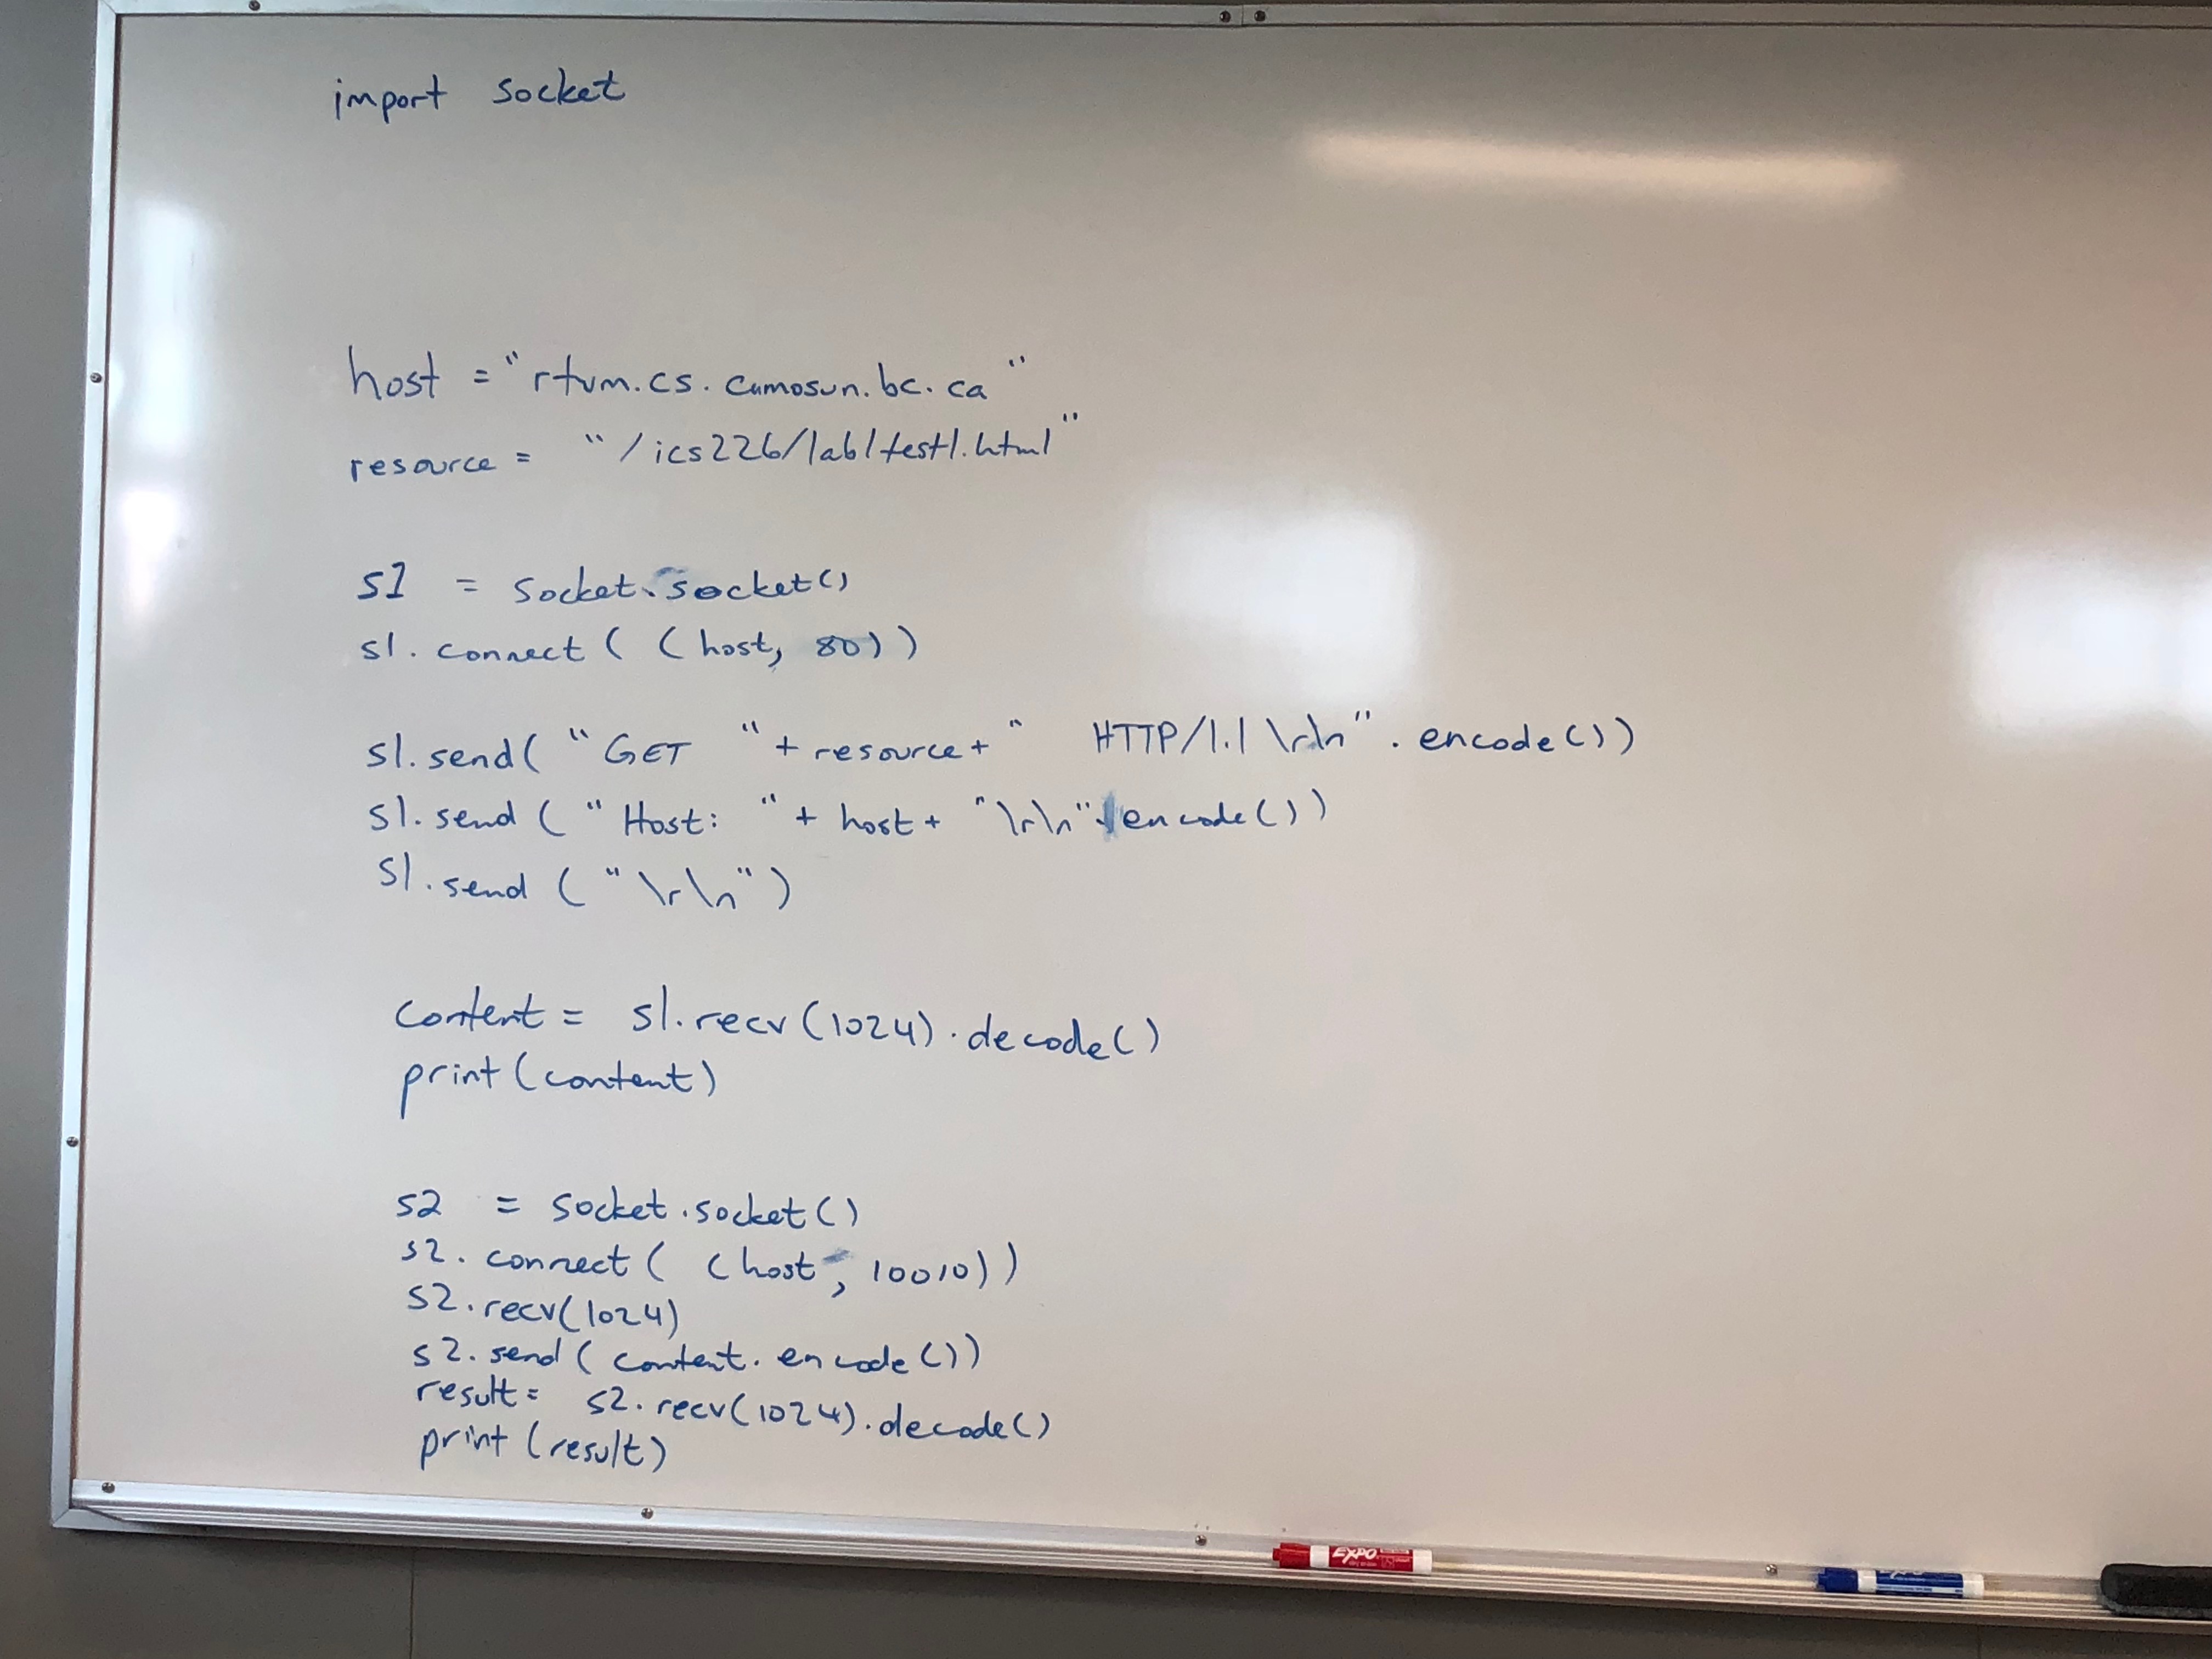 import socket
host = "rtvm.cs.camosun.bc.ca"
resource = "/ics226/lab1test1.html"
s1 = socket.socket()
s1.connect((host, 80))
s1.send("GET "+resource+" HTTP/1.1\r\n".encode())
s1.send("Host: "+host+"\r\n".encode())
s1.send("\r\n")
content = s1.recv(1024).decode()
print(content)
s2 = socket.socket()
s2.connect((host, 10010))
s2.recv(1024)
s2.send(content.encode())
result = s2.recv(1024).decode()
print(result)
EXPO